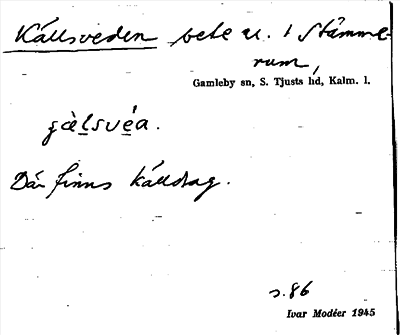 Källsveden bete av. 1 Stämme-
rum,
Gamleby sn, S. Tjusts hd, Kalm. l.
Där finns källdrag.
s. 86
Ivar Modéer 1945